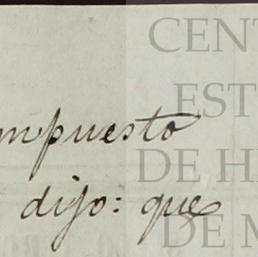 mpuesto
dijo: que
CENT
EST
DE H
DE M